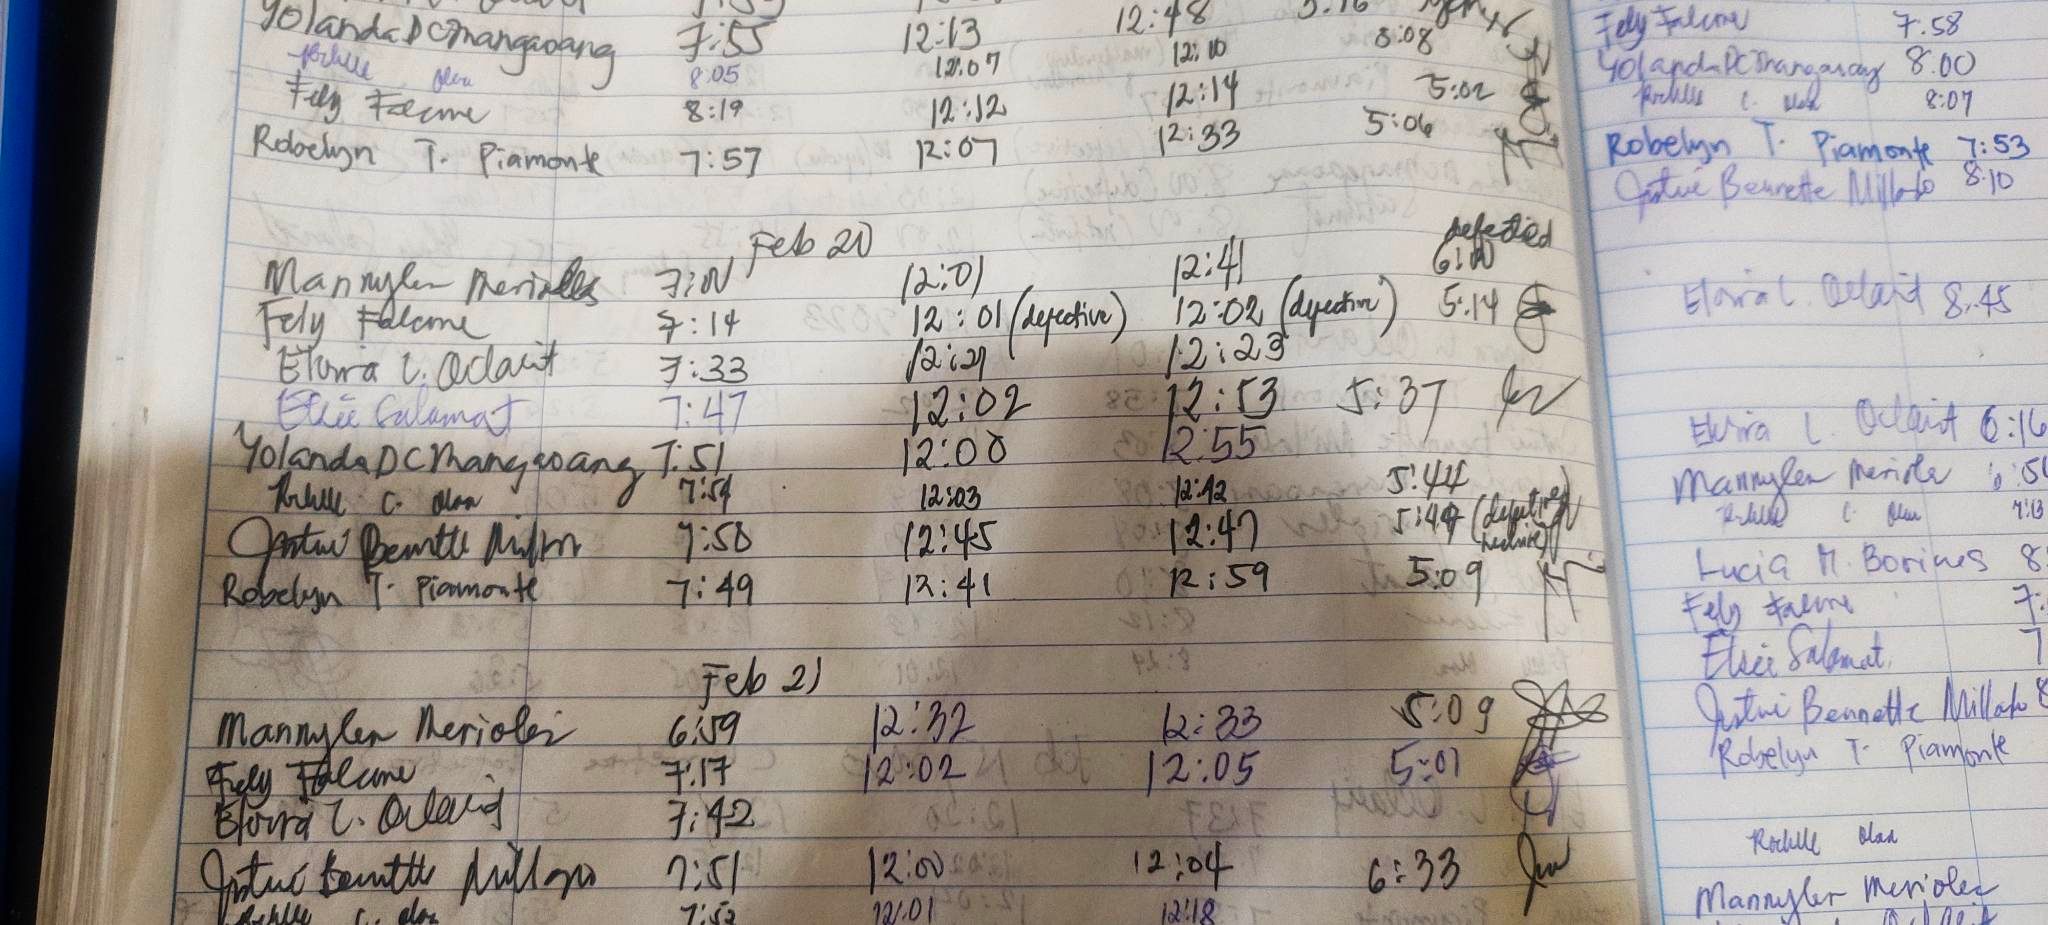 Yolanda DC Mangaoang 7:55 12:13 12:48 5:16
Rochelle Olan 8:05 12:07 12:10 8:08
Fely Falcme 8:19 12:12 12:14 5:02
Robelyn T. Piamonte 7:57 12:07 12:33 5:06
Feb 20
Mannylen Merioles 7:00 12:01 12:41 6:00
Fely Falcme 7:14 12:01 (defective) 12:02 (defective) 5:14
Elvira C. Oclarit 7:33 12:21 12:23
Elsie Salamat 7:47 12:02 12:53 5:37
Yolanda DC Mangaoang 7:51 12:00 12:55
Rochelle C. Olan 7:54 12:03 12:42 5:44
Bennette 7:50 12:45 12:47 5:44
Robelyn T. Piamonte 7:49 12:41 12:59 5:09
Feb 21
Mannylen Merioles 6:59 12:32 12:33 5:09
Fely Falcme 7:17 12:02 12:05 5:01
Elvira C. Oclarit 7:42
Bennette 7:51 12:00 12:04 6:33
Rochelle C. Olan 7:52 12:01 12:18
Fely Falcme 7:58
Yolanda DC Mangaoang 8:00
Rochelle C. Olan 8:07
Robelyn T. Piamonte 7:53
Bennette Millado 8:10
Elvira C. Oclarit 8:45
Elvira C. Oclarit 6:16
Mannylen Merioles
Rochelle C. Olan 7:13
Lucia M. Borines
Fely Falcme 7:
Elsie Salamat 7
Bennette Millado 8
Robelyn T. Piamonte
Rochelle Olan
Mannylen Merioles